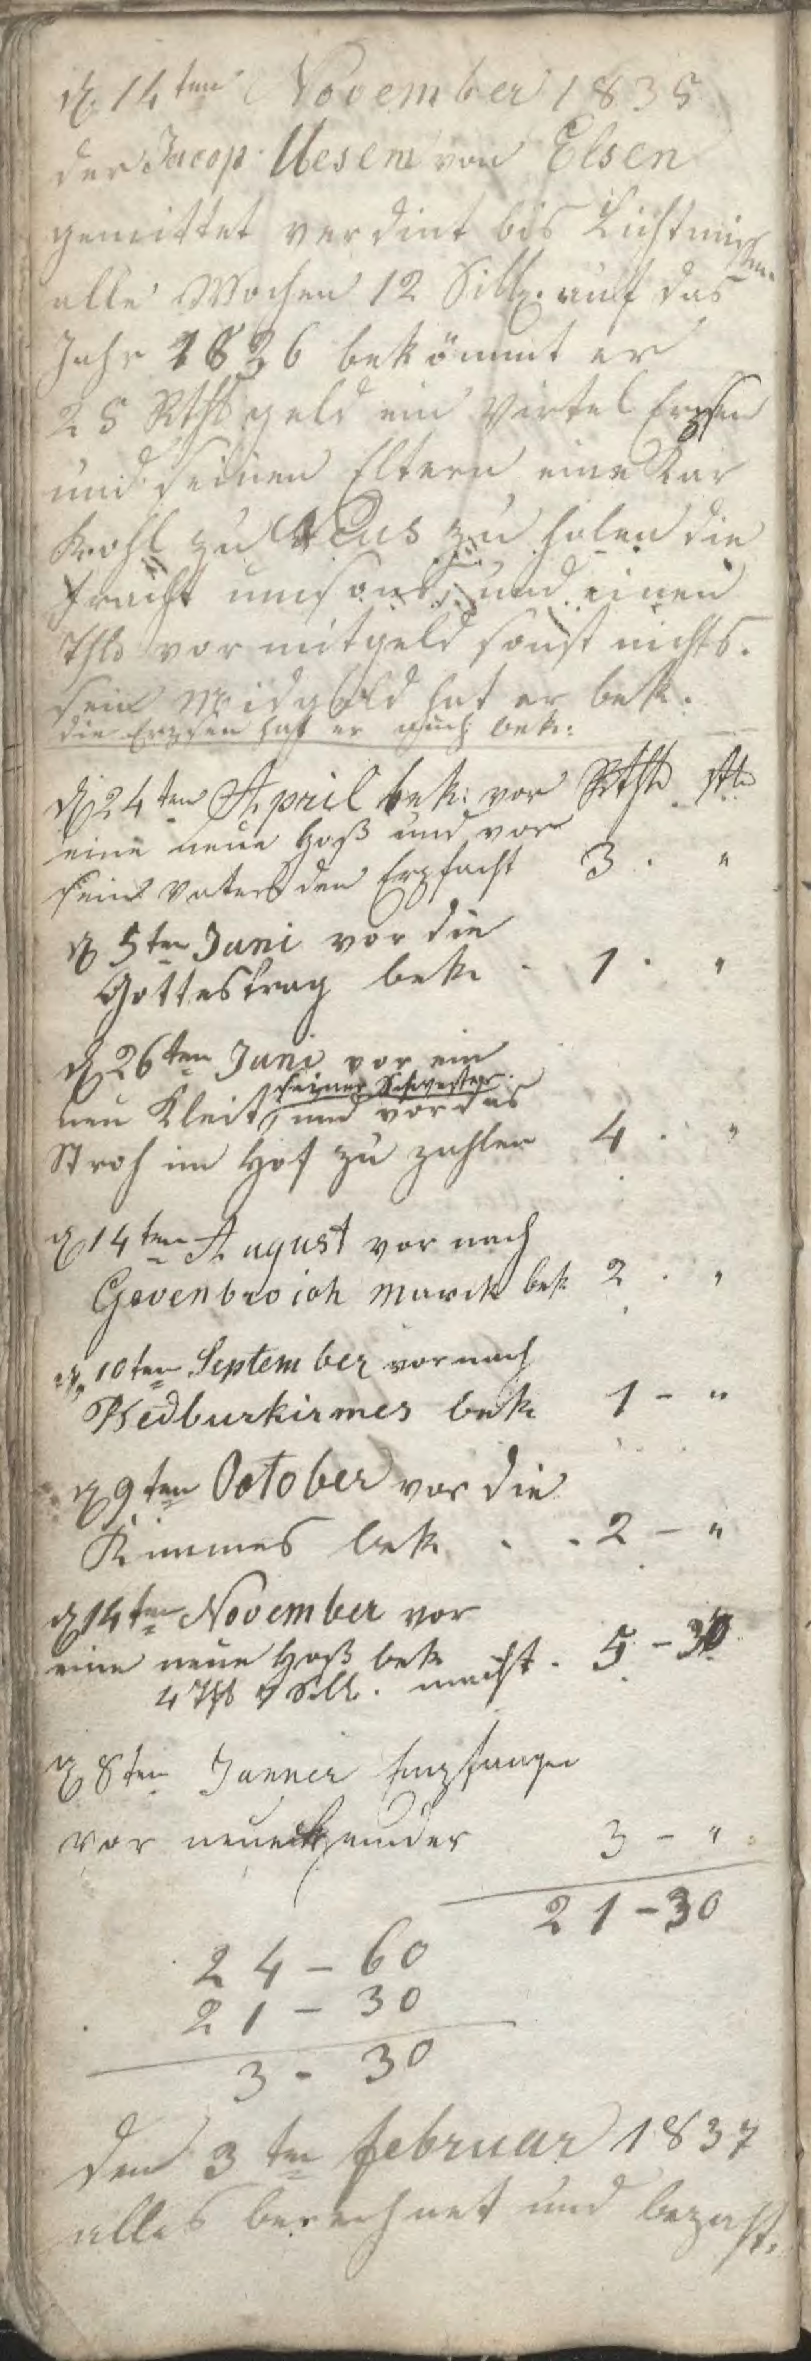 d 14ten November 1835
der Jacop Uesem von Elsen
gemittet verdint bis Lichtmissen
alle Wochen 12 Silbg. auf das
Jahr 1836 bekömmt er
25 Rthl geld ein Virtel Erpsen
und seinen Eltern eine Kar
Kohl zu Neus zu holen die
Fracht umsonst, und einen
Thlr vor mitgeld sonst nichts.
sein Midgeld hat er bek.
die Erpsen hat er auch bek:
d 24ten April bek: vor Rthlr stbr
eine neue Hoß und vor
sein Vater den Erpfacht 3 . "
d 5ten Juni vor die
Gottestrag bek . 1 . "
d 26ten Juni vor ein
seiner Schwester
neu Kleit, und vor das
Stroh im Hof zu zahlen 4 . "
d 14ten August vor nach
Gevenbroich Marck bek 2 . "
d, 10ten September vor nach
Bedburkirmes bek 1 - "
d 9ten October vor die
Kirmes bek . . 2 - "
d 14ten November vor
eine neue Hoß bek
4 Thlr Silb. macht . 5 - 30
d 8ten Janner Empfangen
vor neue Hemder 3 - "
21 - 30
24 - 60
21 - 30
3 - 30
Den 3ten februar 1837
alles berechnet und bezahlt.